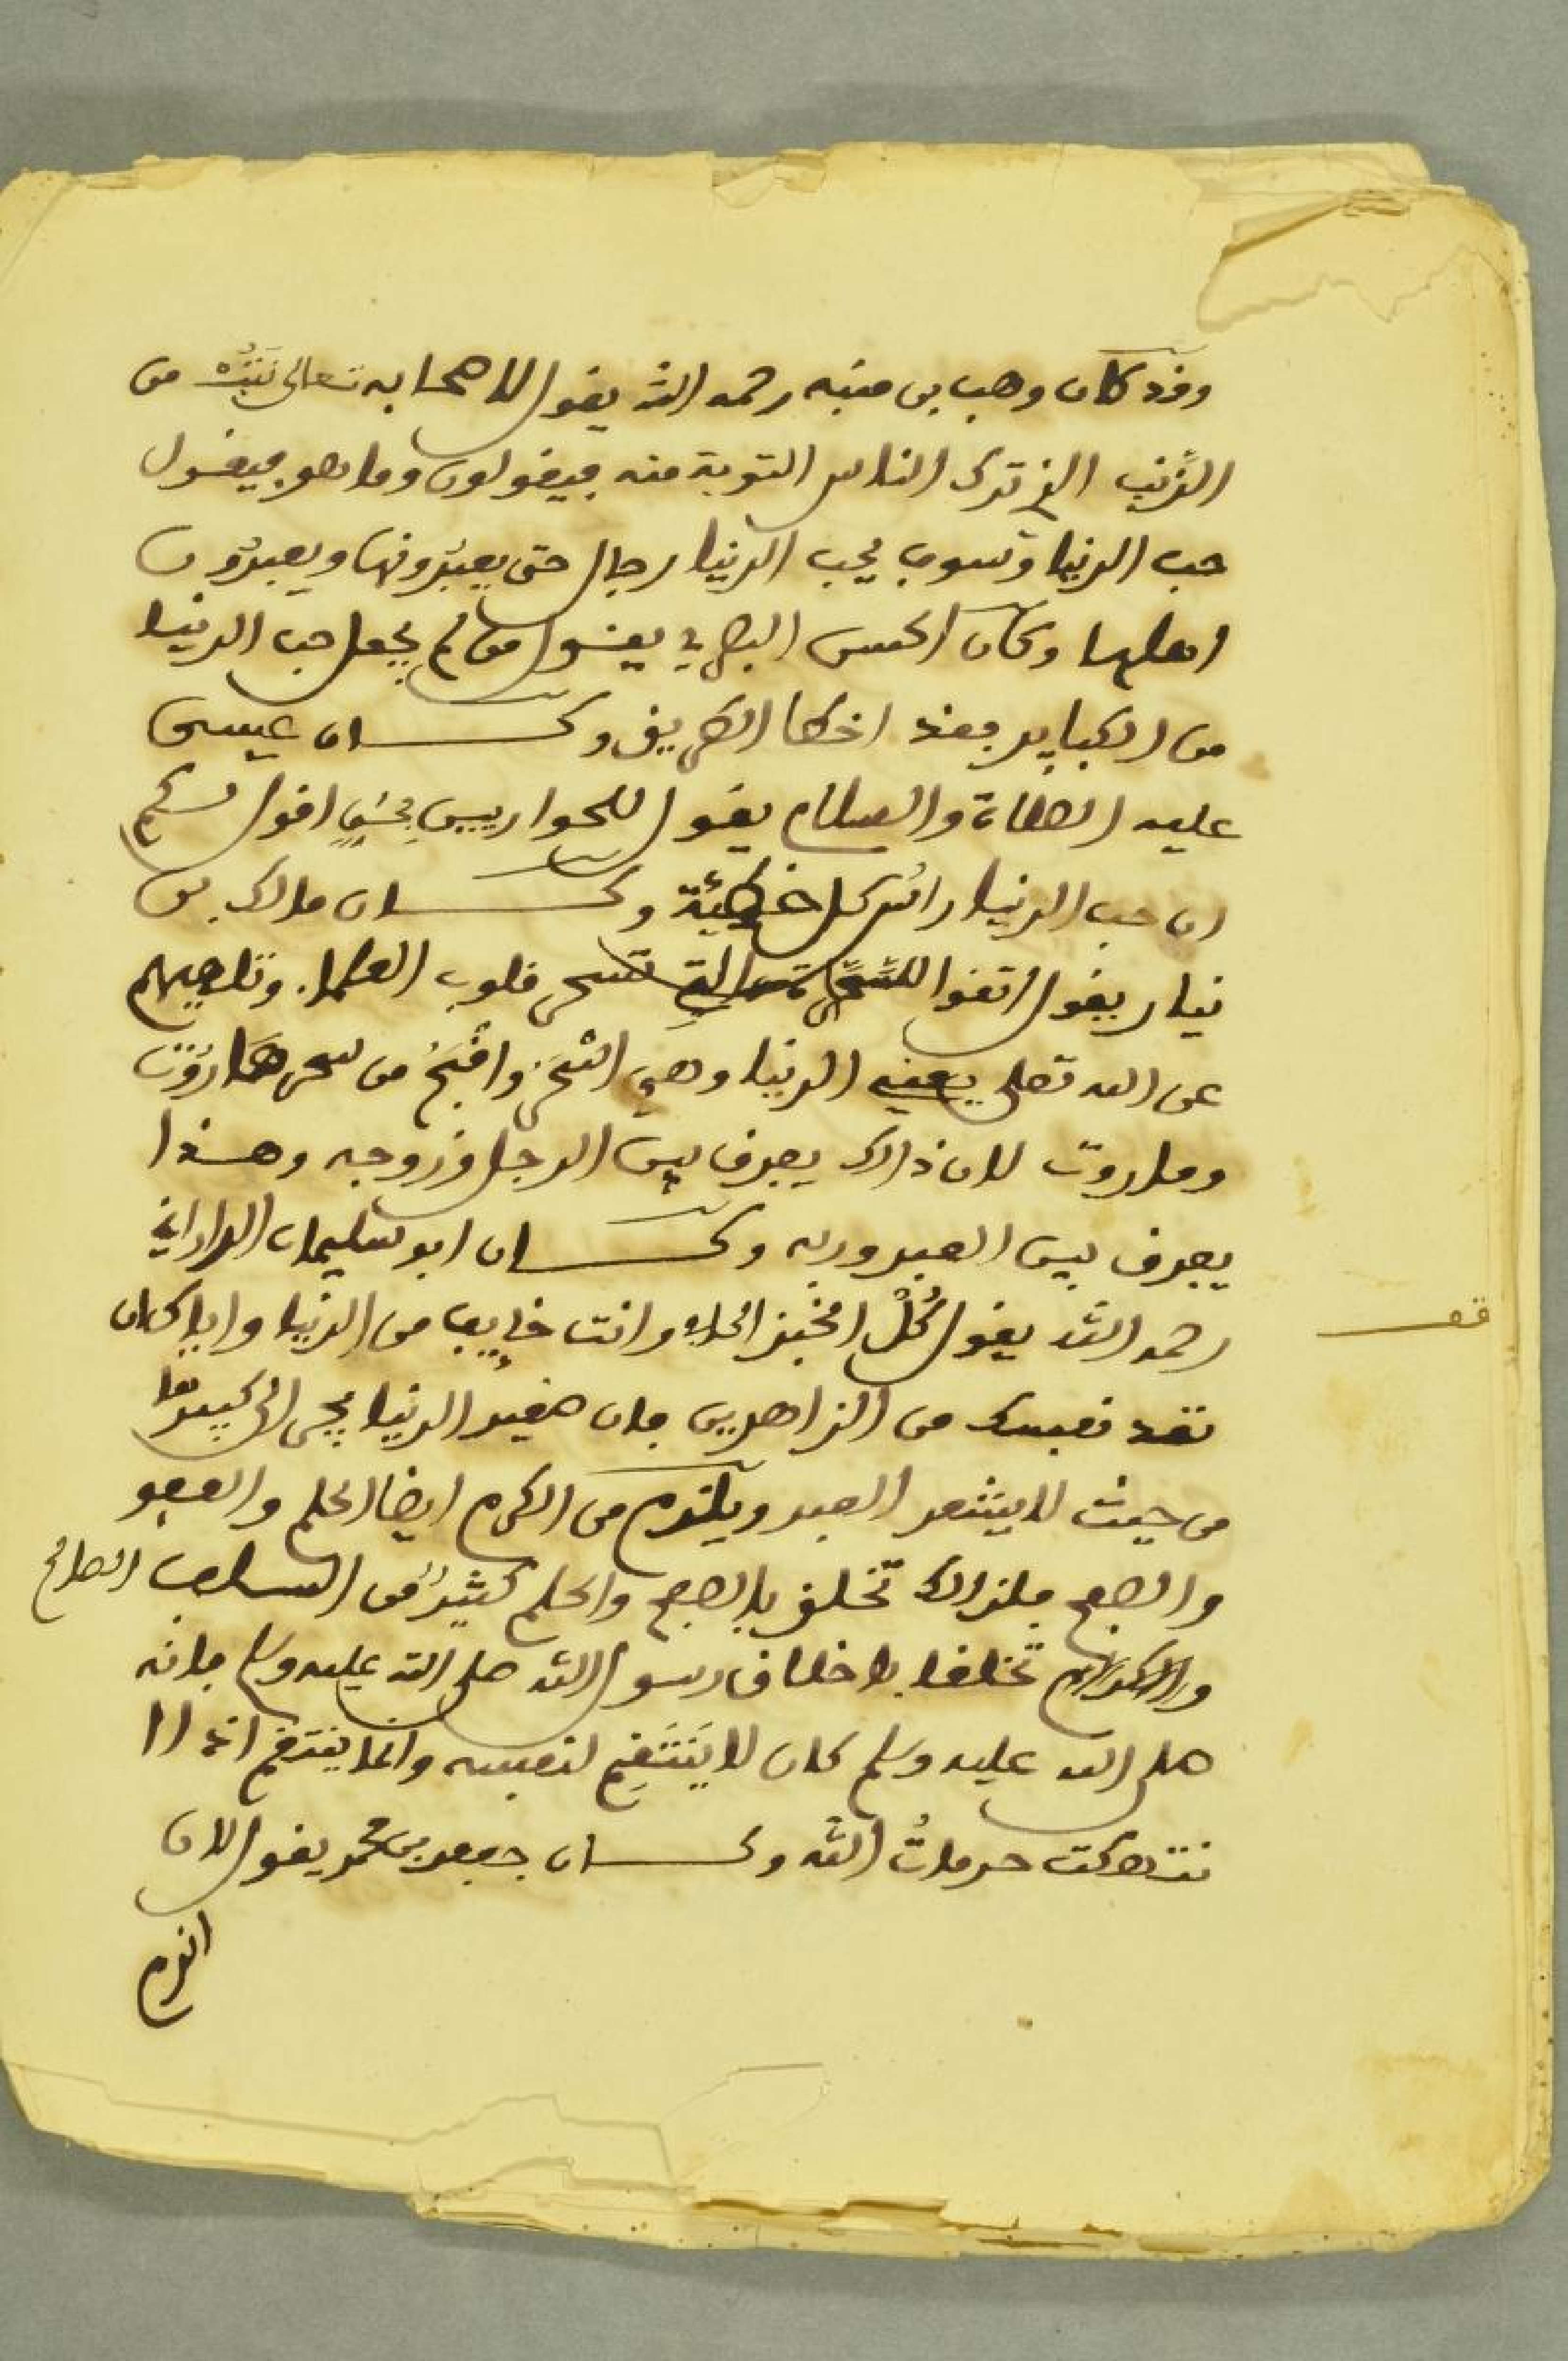 وقد كان وهب بن منبه رحمه الله يقول لاصحابه تعالى نتب من
الذنب الذي ترك الناس التوبة منه فيقولون وما هو فيقول
حب الدنيا وسوف يحب الدنيا رجال حتى يعبدونها ويعبدون
اهلها وكان الحسن البصري يقول من لم يجعل حب الدنيا
من الكبابر فقد اخطا الطريق وكان عيسى
عليه الصلاة والسلام يقول للحواريين بحق اقول لكم
ان حب الدنيا رأس كل خطيئة وكان مالك بن
نيار يقول اتقوا السحارة التي تسحر قلوب العلماء وتلهيهم
عن الله تعلى يعني الدنيا وهي اشحر واقبح من سحر هاروت
وماروت لان ذالك يفرق بين الرجل وزوجه وهذا
يفرق بين العبد وربه وكان ابو سليمان الداراني
رحمه الله يقول كل الخبز الحاف وانت خايف من الدنيا واياك ان
تعد نفسك من الزاهدين فان صغير الدنيا يجر الى كبيرها
من حيث لا يشعر العبد ويلزم من الكرم ايضا الحلم والعفو
والصفح فلذالك تخلق بالصفح والحلم كثير من السلف الصالح
والاكرام تخلقا باخلاق رسول الله صلى الله عليه وسلم فانه
صلى الله عليه وسلم كان لا ينتقم لنفسه وانما ينتقم اذا
نتهكت حرمات الله وكان جعفر بن محمد يقول لان
اندم
قف